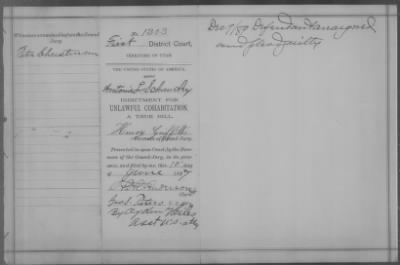 Witnesses examined before the Grand
Jury.
Peter Christensen
No. 1303
First District Court,
TERRITORY OF UTAH.
THE UNITED STATES OF AMERICA,
against
INDICTMENT FOR
UNLAWFUL COHABITATION.
A TRUE BILL.
Henry
Foreman of Grand Jury.
Presented in open Court by the Fore-
man of the Grand Jury, in the pres-
ence, and filed by me, this 18 day
of June 1887
Clerk.
Geo. S. Peters
By Ogden Hiles
Asst U.S. atty
Dec 7/87 Defendant arraigned
and plead guilty